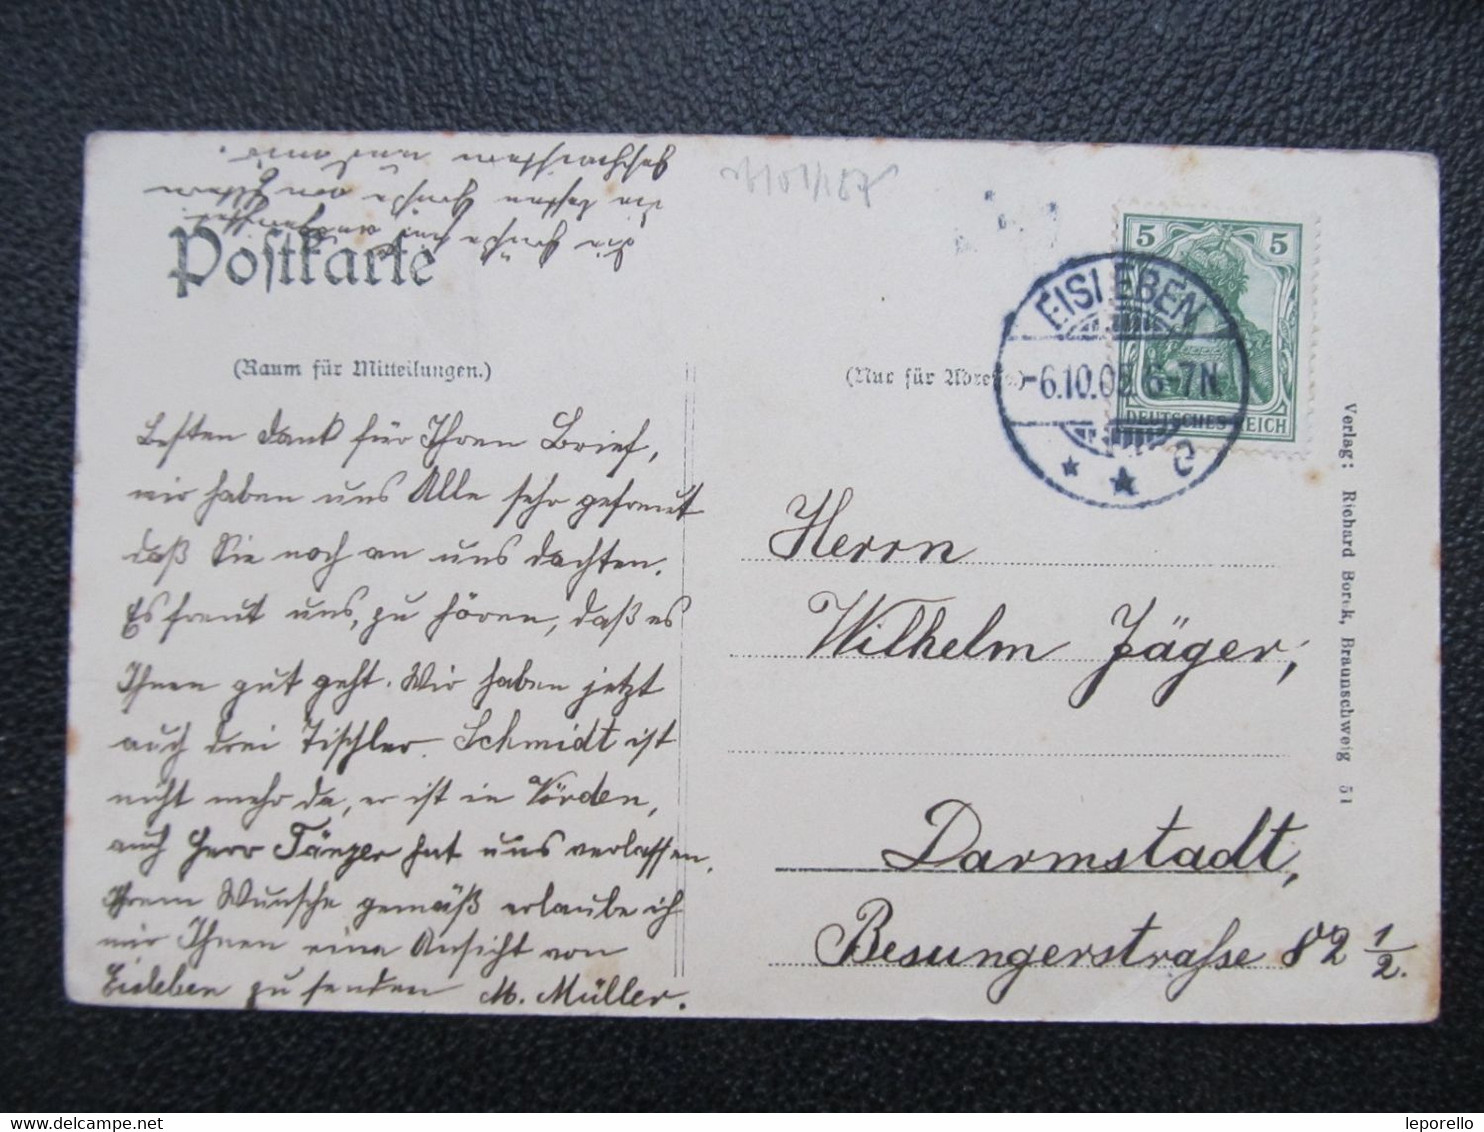 Postkarte
(Raum für Mitteilungen.)
(Nur für Adresse.)
5 5
DEUTSCHES REICH
EISLEBEN
-6.10.05 6-7N
* * c
Besten Dank für Ihren Brief,
wir haben uns Alle sehr gefreut
daß Sie noch an uns dachten.
Es freut uns, zu hören, daß es
Ihnen gut geht. Wir haben jetzt
auch drei Tischler. Schmidt ist
nicht mehr da, er ist in Vörden,
auch Herr Tänzer hat uns verlassen.
Ihrem Wunsche gemäß erlaube ich
mir Ihnen eine Ansicht von
Eisleben zu senden M. Müller.
die Grüße
die besten Grüße von
Geschwistern und mir.
Herrn
Wilhelm Jäger,
Darmstadt,
Besungerstraße 82 1/2.
Verlag: Richard Borek, Braunschweig 51
leporello